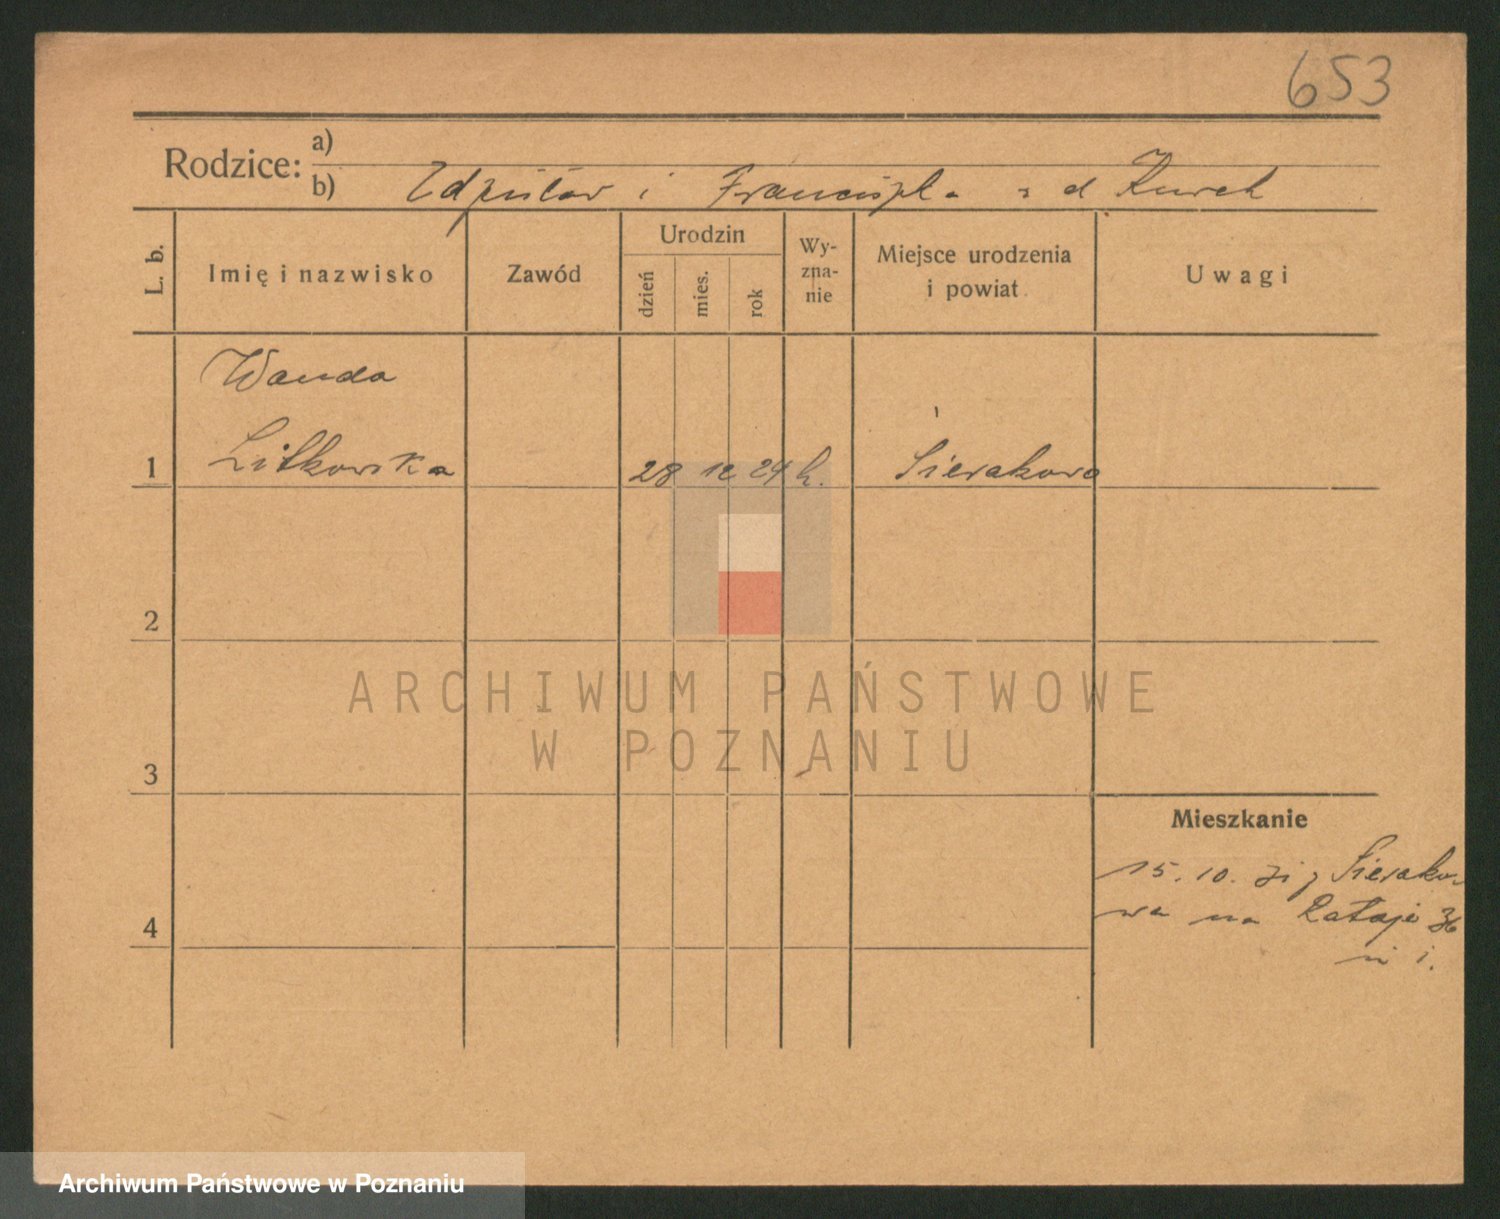 653
Rodzice: a)
b) Zdzisław i Franciszka z d Kurek
L. b.
Imię i nazwisko
Zawód
Urodzin
dzień
mies.
rok
Wy-
zna-
nie
Miejsce urodzenia
i powiat
Uwagi
Wanda
1 Litkowska 28 12 24 k. Sierakowo
2
ARCHIWUM PAŃSTWOWE
W POZNANIU
3
Mieszkanie
15. 10. z Sierako-
wa na Rataje 36
4
Archiwum Państwowe w Poznaniu